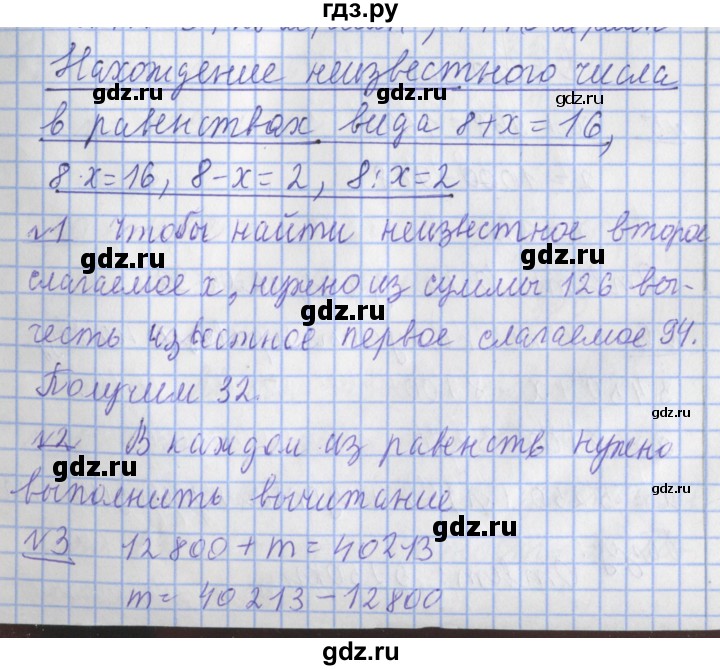 гдз.ру
Нахождение неизвестного числа
в равенствах вида 8+x=16,
8·x=16, 8-x=2, 8:x=2
№1 Чтобы найти неизвестное второе
слагаемое x, нужно из суммы 126 вы-
честь известное первое слагаемое 94.
Получим 32.
№2 В каждом из равенств нужно
выполнить вычитание
№3 12800+m=40213
m=40213-12800
gdz.ru
gdz.ru
gdz.ru
gdz.ru
gdz.ru
gdz.ru
gdz.ru
gdz.ru
gdz.ru
gdz.ru
gdz.ru
gdz.ru
gdz.ru